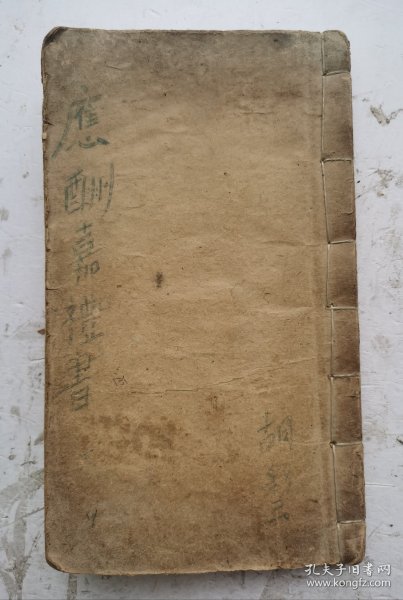 應酬嘉禮書
胡
孔夫子旧书网
www.kongfz.com